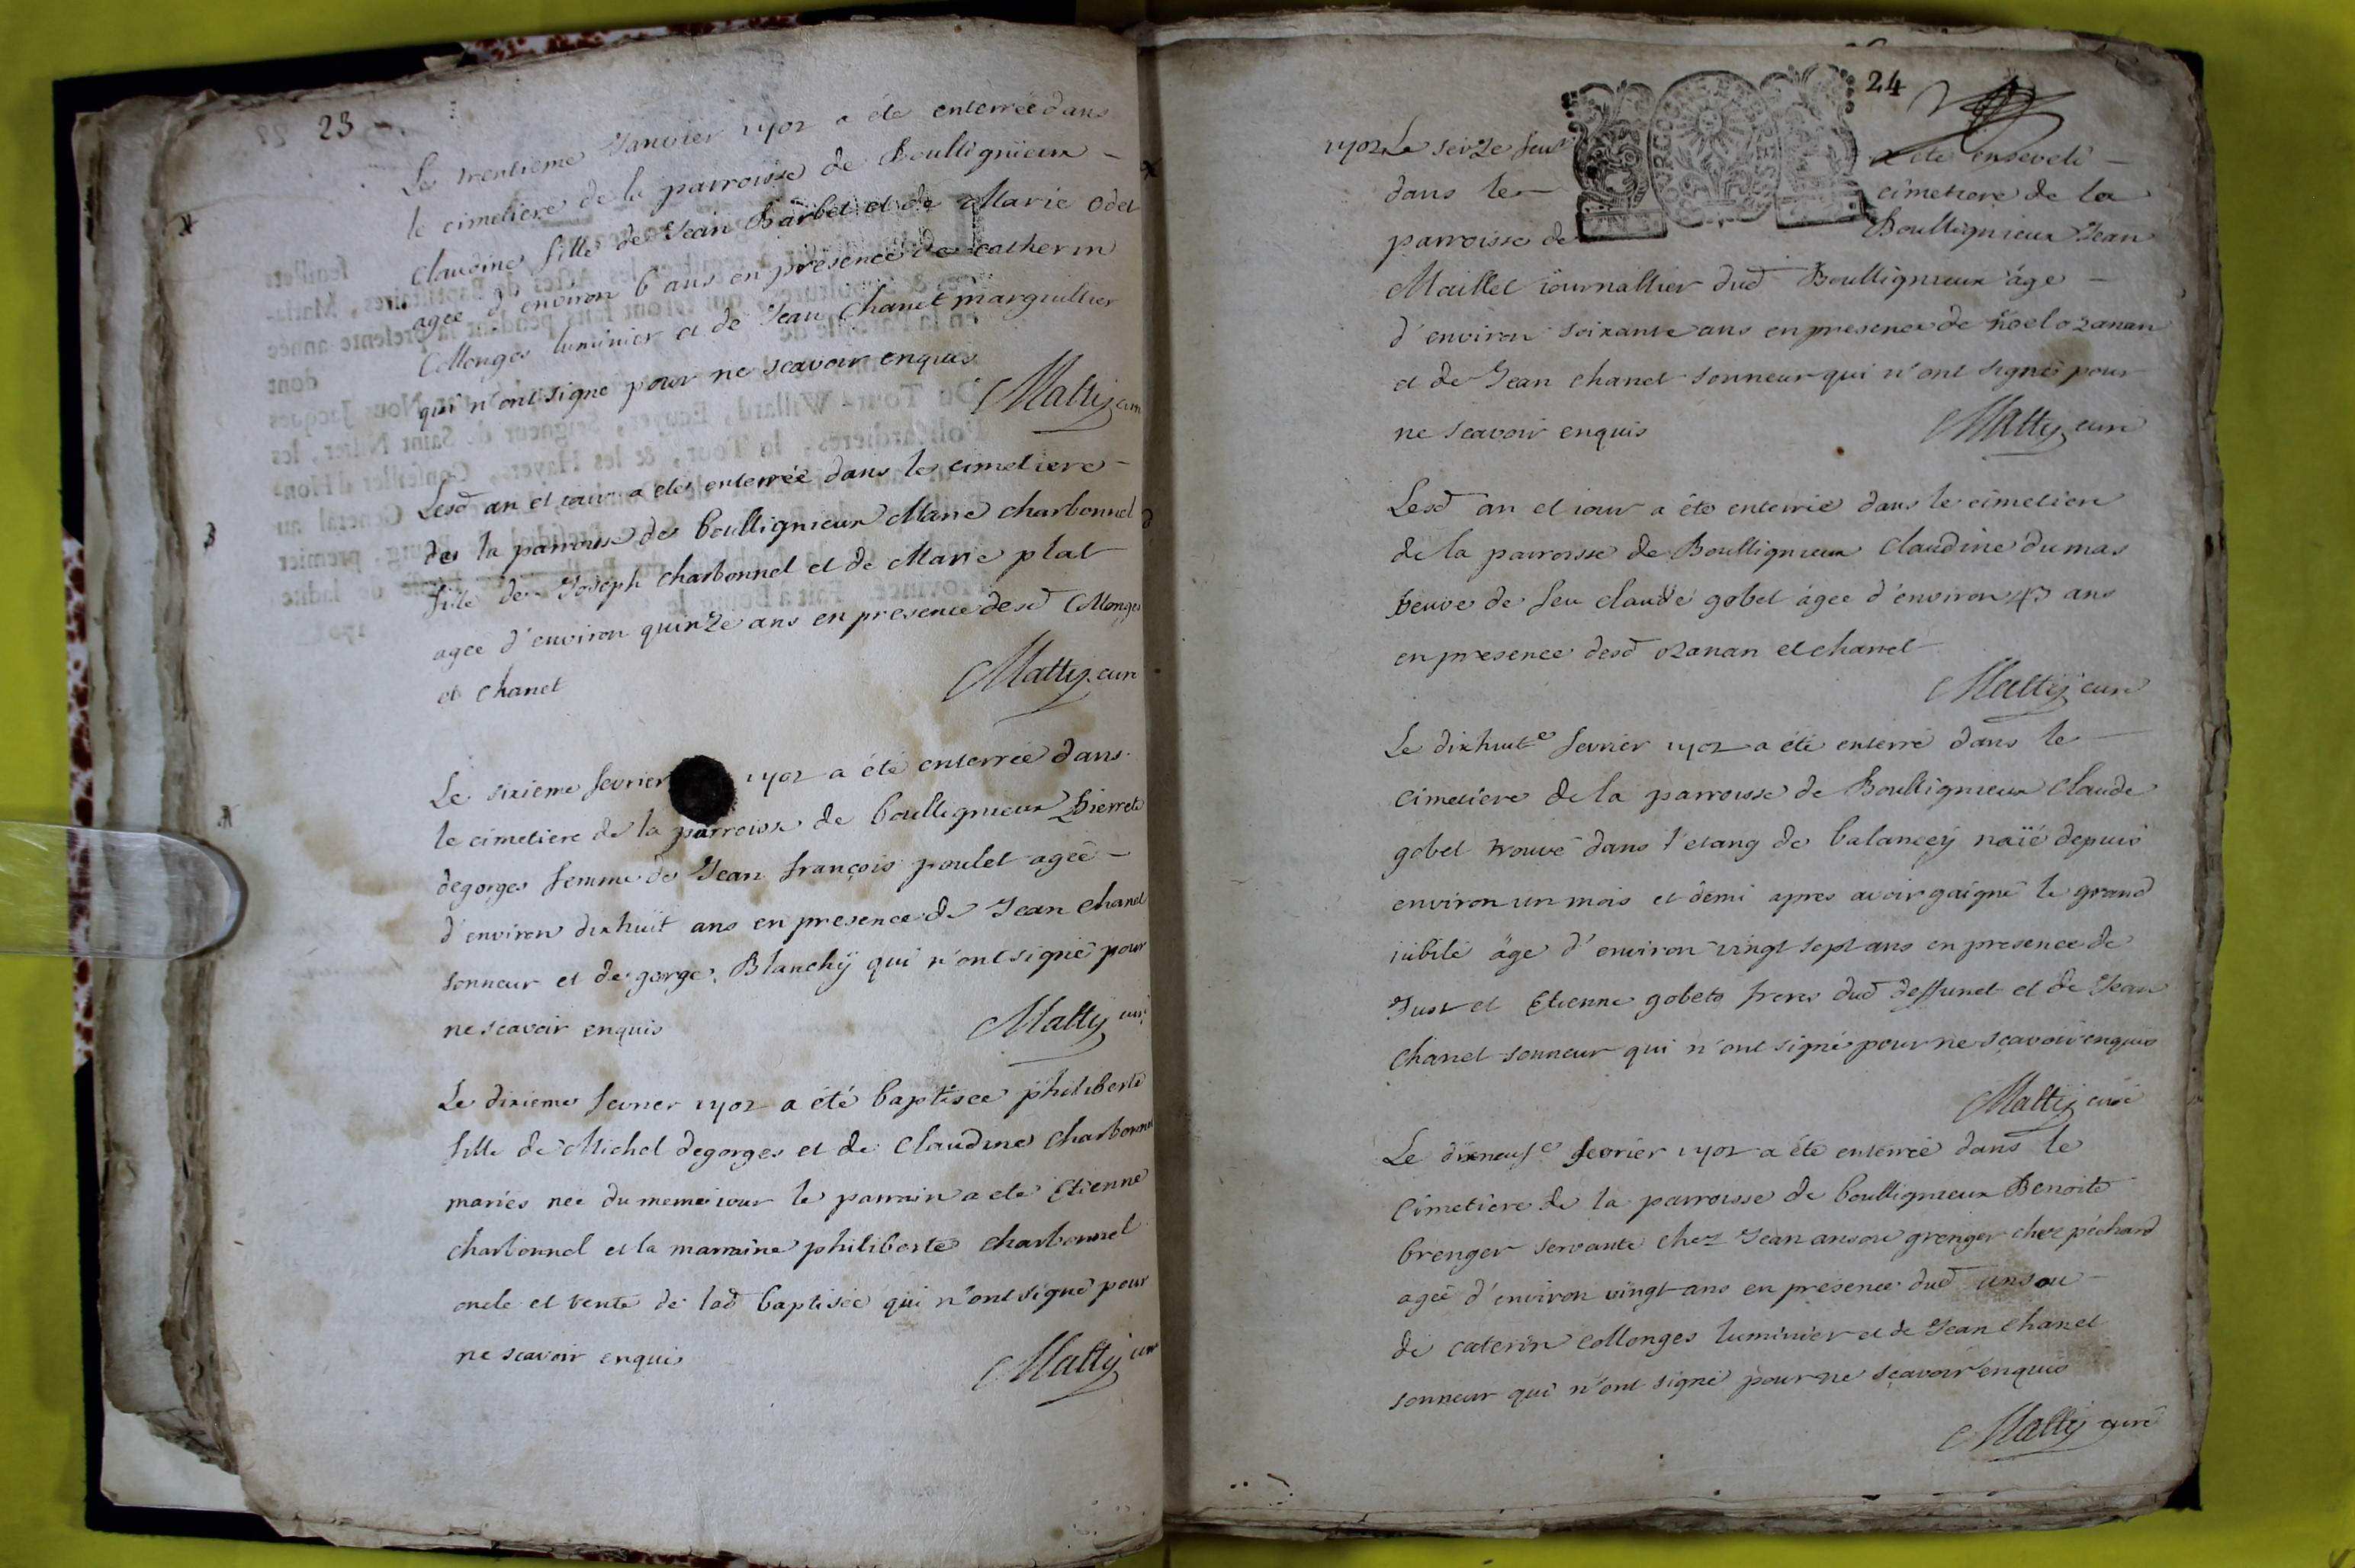 23
Le trentieme Janvier 1702 a été enterrée dans
le cimetiere de la parroisse de Boullignieux
claudine fille de Jean Barbet et de Marie odet
agée d'environ 6 ans en presence de catherin
Collonges luminier et de Jean Chanet marguillier
qui n'ont signe pour ne scavoir enquis
Matty curé
Lesd an et iour a eté enterrée dans le cimetiere
de la parroisse de boullignieux Marie charbonnel
fille de Joseph charbonnel et de Marie plat
agee d'environ quinze ans en presence desd Collonges
et chanet
Matty curé
Le sixieme fevrier 1702 a été enterrée dans
le cimetiere de la parroisse de boullignieux pierrete
degorges femme de Jean françois poulet agée
d'environ dixhuit ans en presence de Jean chanet
sonneur et de gorge Blanchÿ qui n'ont signé pour
ne scavoir enquis
Mattÿ curé
Le dixieme fevrier 1702 a été baptisee philiberte
fille de Michel degorges et de Claudine Charbonnel
mariés née du meme iour le parrain a eté Etienne
charbonnel et la marraine philiberte charbonnel
oncle et tente de lad baptisée qui n'ont signé pour
ne scavoir enquis
Mattÿ curé
24
1702 Le seize feur a été enseveli
dans le cimetiere de la
parroisse de Boullignieux Jean
Maillet iournallier dud Boullignieux âge
d'environ soixante ans en presence de noel ozanan
et de Jean chanet sonneur qui n'ont signé pour
ne scavoir enquis
Mattÿ curé
Lesd an et iour a été enterrée dans le cimetiere
de la parroisse de Boullignieux Claudine dumas
veuve de feu claude gobet ágee d'environ 43 ans
en presence desd ozanan et chanet
Mattÿ curé
Le dixhuit^e fevrier 1702 a été enterré dans le
cimetiere de la parroisse de Boullignieux Claude
gobet trouvé dans l'etang de balancey naïé depuis
environ un mois et demi apres avoir gaigné le grand
iubilé âge d'environ vingt sept ans en presence de
Just et Etienne gobets freres dud deffunct et de Jean
Chanet sonneur qui n'ont signé pour ne sçavoir enquis
Mattÿ curé
Le dixneuf^e fevrier 1702 a été enterrée dans le
Cimetiere de la parroisse de boullignieux Benoite
brenger servante chez Jean ansou grenger chez péchard
agée d'environ vingt ans en presence dud ansou
de caterin collonges luminier et de Jean Chanet
sonneur qui n'ont signé pour ne sçavoir enquis
Mattÿ curé